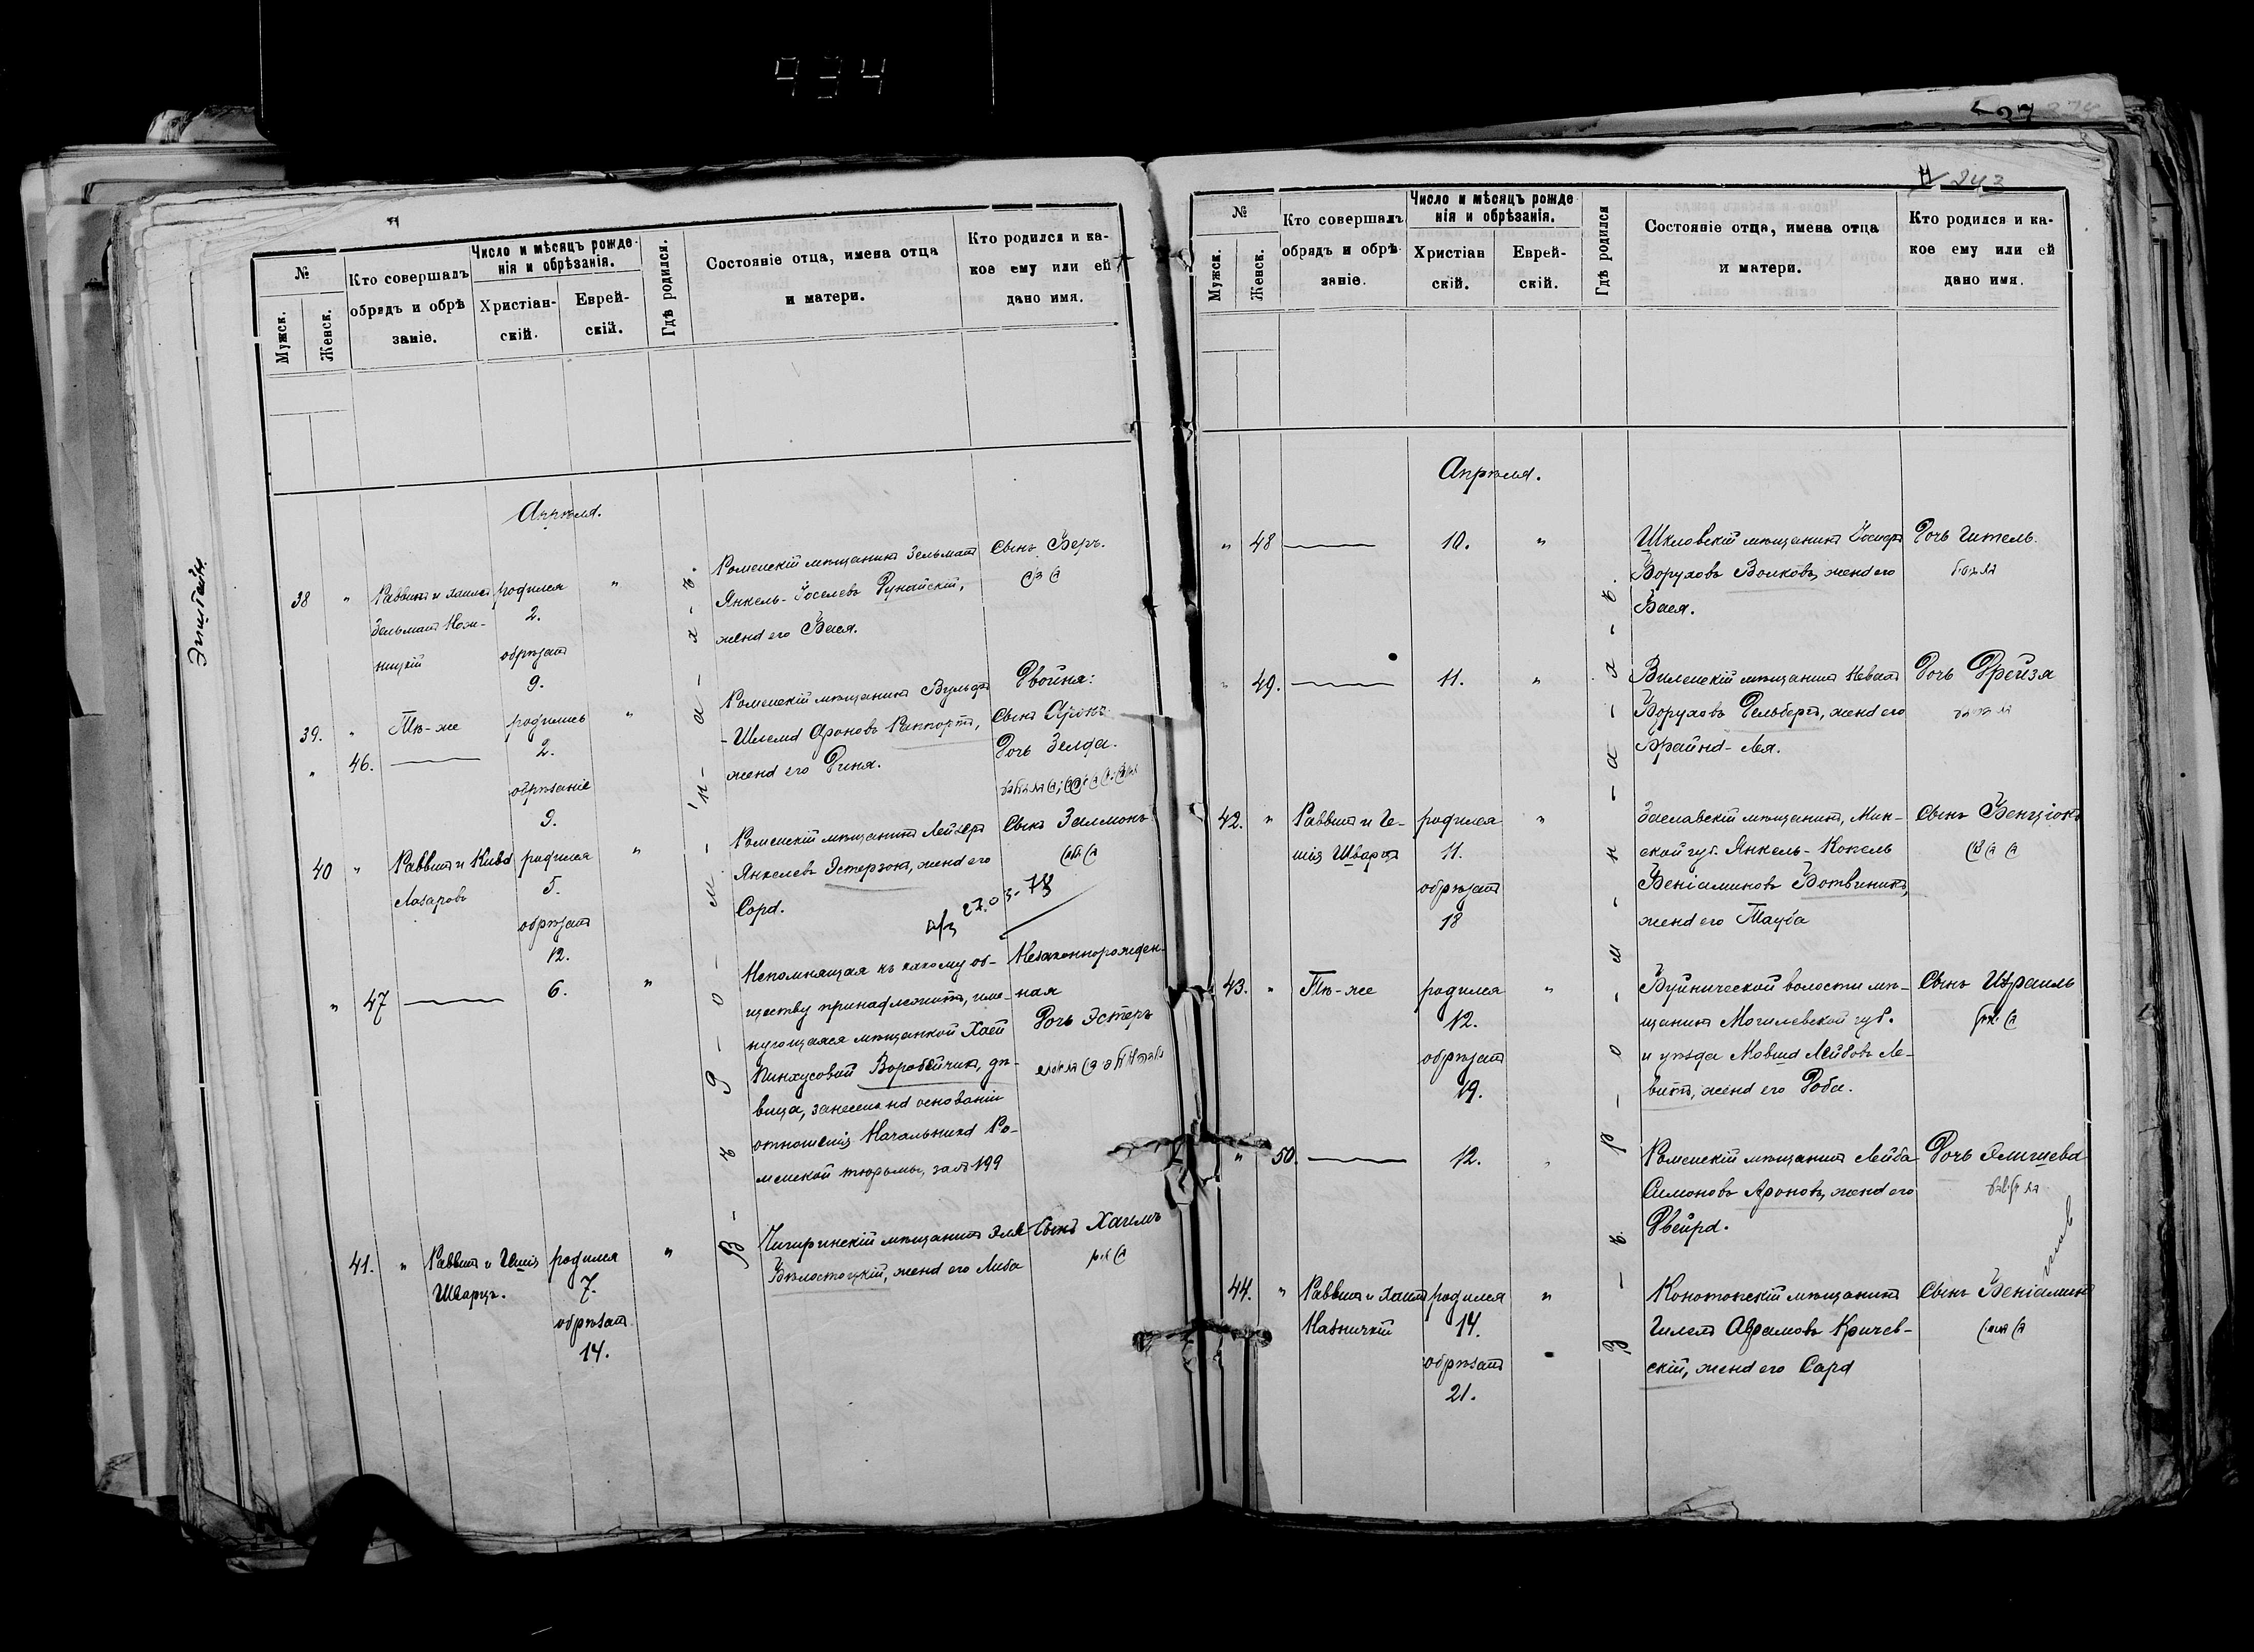 934
Эпштейн
№
Мужск.
Женск.
Кто совершалъ
обрядъ и обрѣ
заніе.
Число и мѣсяцъ рожде
нія и обрѣзанія.
Христіан-
скій.
Еврей-
скій.
Гдѣ родился.
Состояніе отца, имена отца
и матери.
Кто родился и ка-
кое ему или ей
дано имя.
Апрѣля.
В-ъ Р-о-м-н-а-х-ъ.
38 " Раввинъ и Хаимъ родился "
Зельманъ 2.
обрѣзанъ
9.
Роменскій мѣщанинъ Зельманъ
Янкель-Іоселевъ Дунайскій,
жена его Бася.
Сынъ Беръ.
39. " Тѣ-же родились "
" 46. 2.
обрѣзаніе
9.
Роменскій мѣщанинъ Вульфъ
-Шлема Ароновъ Раппортъ,
жена его Диня.
Двойня:
Сынъ Аронъ
Дочь Зелда.
40 " Раввинъ и Кива родился "
Лазаровъ 5.
обрѣзанъ
12.
Роменскій мѣщанинъ Лейзеръ
Янкелевъ Эстерзонъ, жена его
Сора.
Сынъ Залмонъ
" 47 6. "
Непомнящая къ какому об-
ществу принадлежитъ, име-
нующаяся мѣщанкой Хаей
Пинхусовой Воробейчикъ, дѣ-
вица, занесена на основаніи
отношенія Начальника Ро-
менской тюрьмы, за № 199
Незаконнорожден-
ная
Дочь Эстеръ
41. " Раввинъ и Шварцъ. родился "
7.
обрѣзанъ
14.
Чигиринскій мѣщанинъ Эля
Бѣлостоцкій, жена его Либа
Сынъ Хаимъ
243
№
Мужск.
Женск.
Кто совершалъ
обрядъ и обрѣ
заніе.
Число и мѣсяцъ рожде
нія и обрѣзанія.
Христіан
скій.
Еврей-
скій.
Гдѣ родился
Состояніе отца, имена отца
и матери.
Кто родился и ка-
кое ему или ей
дано имя.
Апрѣля.
В-ъ Р-о-м-н-а-х-ъ.
" 48 10. "
Шкловскій мѣщанинъ
Боруховъ Волковъ, жена его
Бася.
Дочь Гитель.
" 49. 11. "
Виленскій мѣщанинъ
Боруховъ Гельбергъ, жена его
Фрайна-Лея.
Дочь Фрейза
42. " Раввинъ и Ге- родился "
шія Шварцъ 11.
обрѣзанъ
18
Заславскій мѣщанинъ, Мин-
ской губ. Янкель-Копель
Веніаминовъ Ботвинникъ,
жена его Тауба
Сынъ Бенціонъ
43. " Тѣ-же родился "
12.
обрѣзанъ
19.
Буйнической волости мѣ-
щанинъ Могилевской губ.
и уѣзда Мовша Лейбовъ Ле-
витъ, жена его Доба.
Сынъ Израиль
" 50. 12. "
Роменскій мѣщанинъ Лейба
Симоновъ Ароновъ, жена его
Двейра.
Дочь Элишева
44. " Раввинъ и Хаимъ родился "
14.
обрѣзанъ
21.
Конотопскій мѣщанинъ
Гилелъ Абрамовъ Кричев-
скій, жена его Сара
Сынъ Веніаминъ